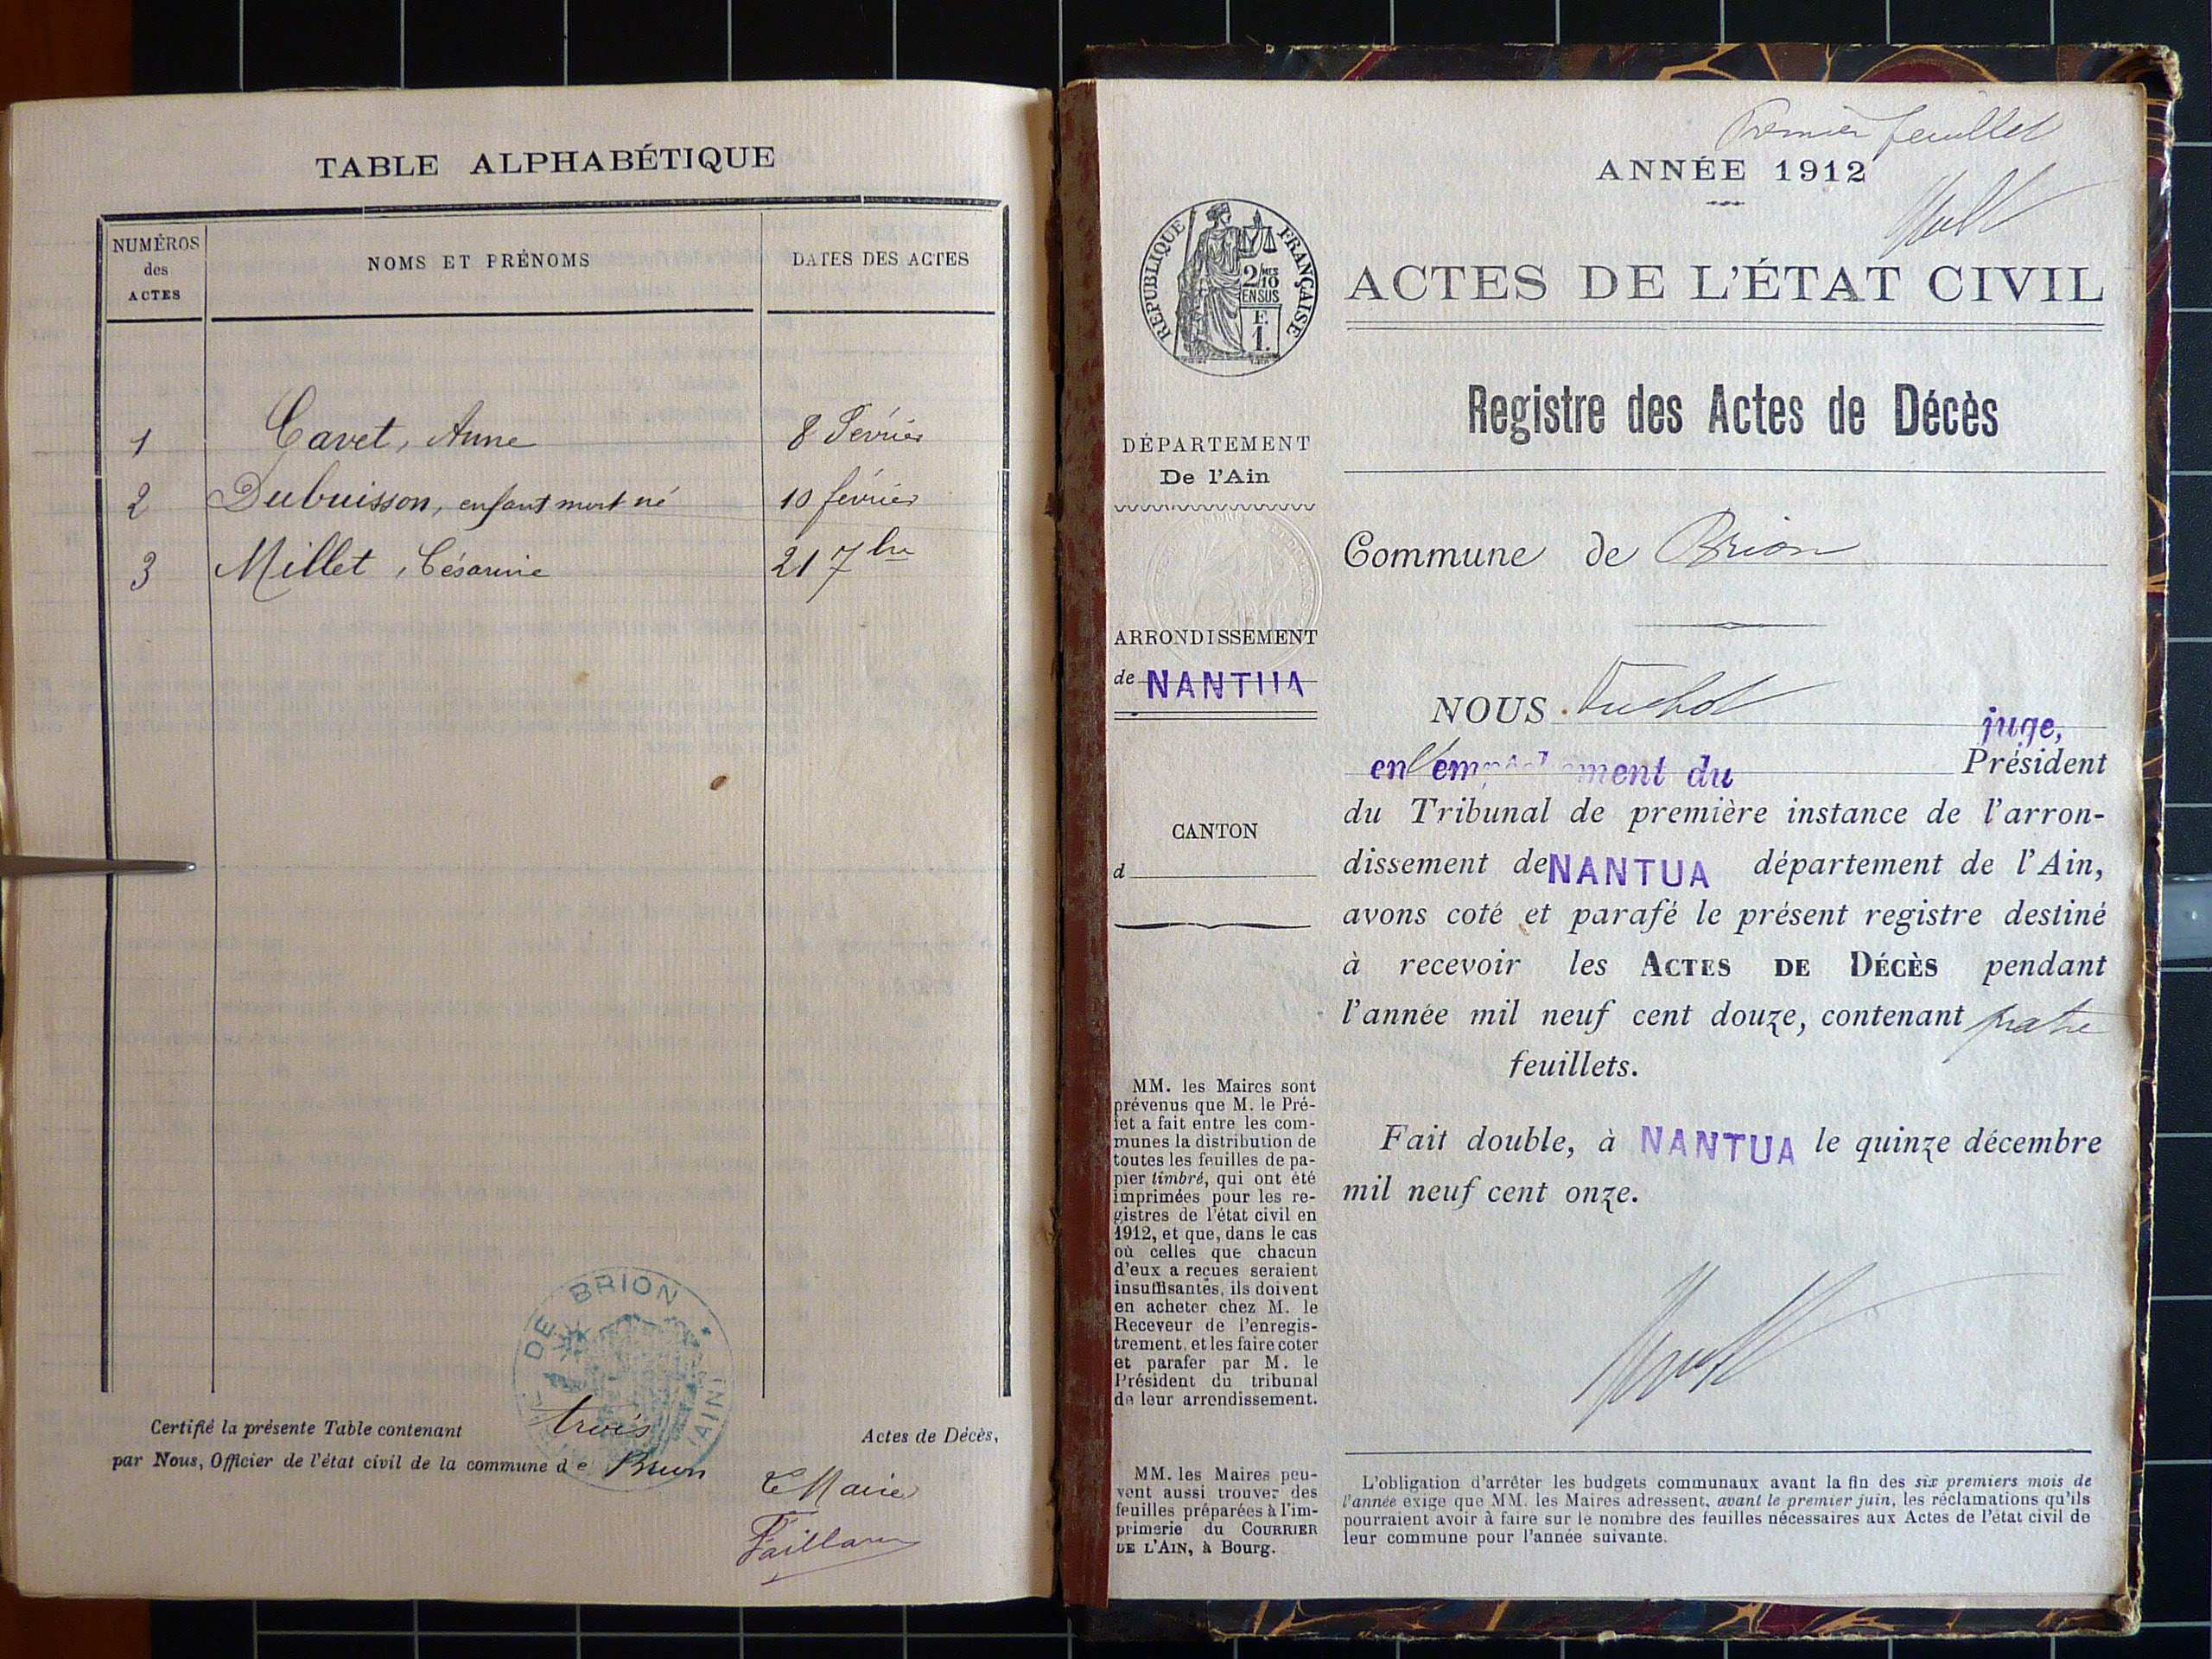 TABLE ALPHABÉTIQUE
NUMÉROS
des
ACTES
NOMS ET PRÉNOMS
DATES DES ACTES
1 Cavet, Anne 8 Février
2 Dubuisson, enfant mort né 10 février
3 Millet, Césarine 21 7bre
DE BRION
(AIN)
Certifié la présente Table contenant trois Actes de Décès,
par Nous, Officier de l'état civil de la commune de Brion
Le Maire
Premier feuillet
ANNÉE 1912
RÉPUBLIQUE FRANÇAISE
2/10
EN SUS
F.
1.
ACTES DE L'ÉTAT CIVIL
Registre des Actes de Décès
DÉPARTEMENT
De l'Ain
Commune de Brion
ARRONDISSEMENT
de NANTUA
CANTON
d
NOUS juge,
en l'empêchement du Président
du Tribunal de première instance de l'arron-
dissement de NANTUA département de l'Ain,
avons coté et parafé le présent registre destiné
à recevoir les ACTES DE DÉCÈS pendant
l'année mil neuf cent douze, contenant quatre
feuillets.
Fait double, à NANTUA le quinze décembre
mil neuf cent onze.
MM. les Maires sont
prévenus que M. le Pré-
fet a fait entre les com-
munes la distribution de
toutes les feuilles de pa-
pier timbré, qui ont été
imprimées pour les re-
gistres de l'état civil en
1912, et que, dans le cas
où celles que chacun
d'eux a reçues seraient
insuffisantes, ils doivent
en acheter chez M. le
Receveur de l'enregis-
trement, et les faire coter
et parafer par M. le
Président du tribunal
de leur arrondissement.
MM. les Maires peu-
vent aussi trouver des
feuilles préparées à l'im-
primerie du COURRIER
DE L'AIN, à Bourg.
L'obligation d'arrêter les budgets communaux avant la fin des six premiers mois de
l'année exige que MM. les Maires adressent, avant le premier juin, les réclamations qu'ils
pourraient avoir à faire sur le nombre des feuilles nécessaires aux Actes de l'état civil de
leur commune pour l'année suivante.